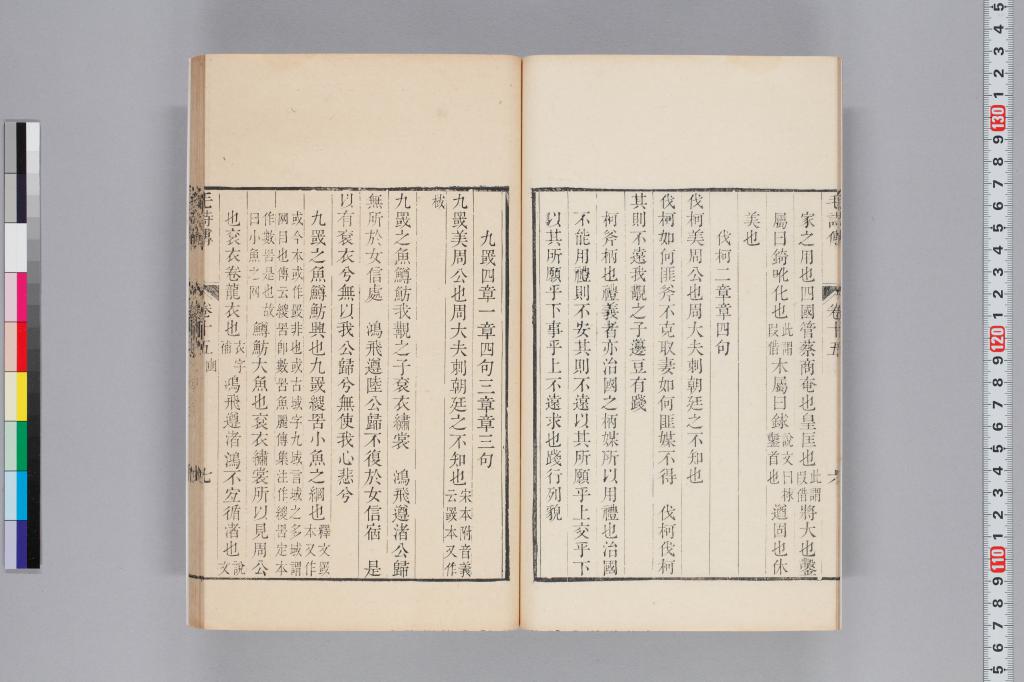 家之用也四國管蔡商奄也皇匡也此謂叚借將大也鑿
屬曰錡吪化也此謂叚借木屬曰銶說文曰梂鑿首也遒固也休
美也
伐柯二章章四句
伐柯美周公也周大夫刺朝廷之不知也
伐柯如何匪斧不克取妻如何匪媒不得 伐柯伐柯
其則不遠我覯之子籩豆有踐
柯斧柄也禮義者亦治國之柄媒所以用禮也治國
不能用禮則不安其則不遠以其所願乎上交乎下
以其所願乎下事乎上不遠求也踐行列貌
毛詩傳 卷十五 六
九罭四章一章四句三章章三句
九罭美周公也周大夫刺朝廷之不知也宋本附音義云罭本又作
棫
九罭之魚鱒魴我覯之子袞衣繡裳 鴻飛遵渚公歸
無所於女信處 鴻飛遵陸公歸不復於女信宿 是
以有袞衣兮無以我公歸兮無使我心悲兮
九罭之魚鱒魴興也九罭緵罟小魚之網也釋文罭本又作
或今本或作罭非也或古域字九域言域之多域謂
网目也傳云緵罟卽數罟魚麗傳集注作緵罟定本
作數罟是也故曰小魚之网鱒魴大魚也袞衣繡裳所以見周公
也袞衣卷龍衣也衣字補鴻飛遵渚鴻不宐循渚也說文
毛詩傳 卷十五 豳 七